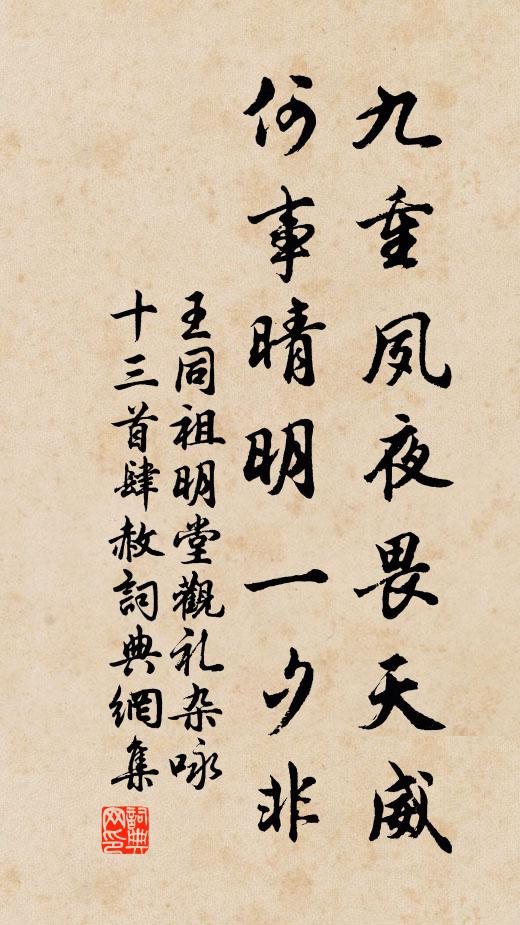 九重夙夜畏天威
何事晴明一夕非
王同祖明堂觀礼杂咏
十三首肆赦詞典網集
詞典网印